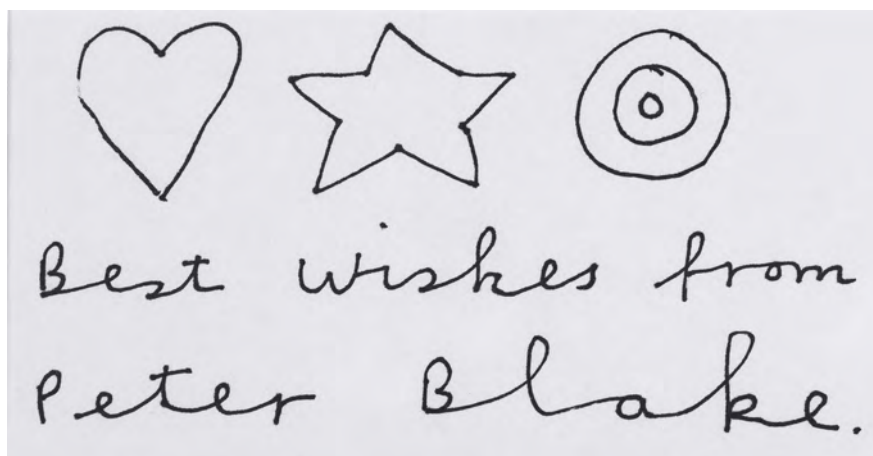 Best wishes from
Peter Blake.